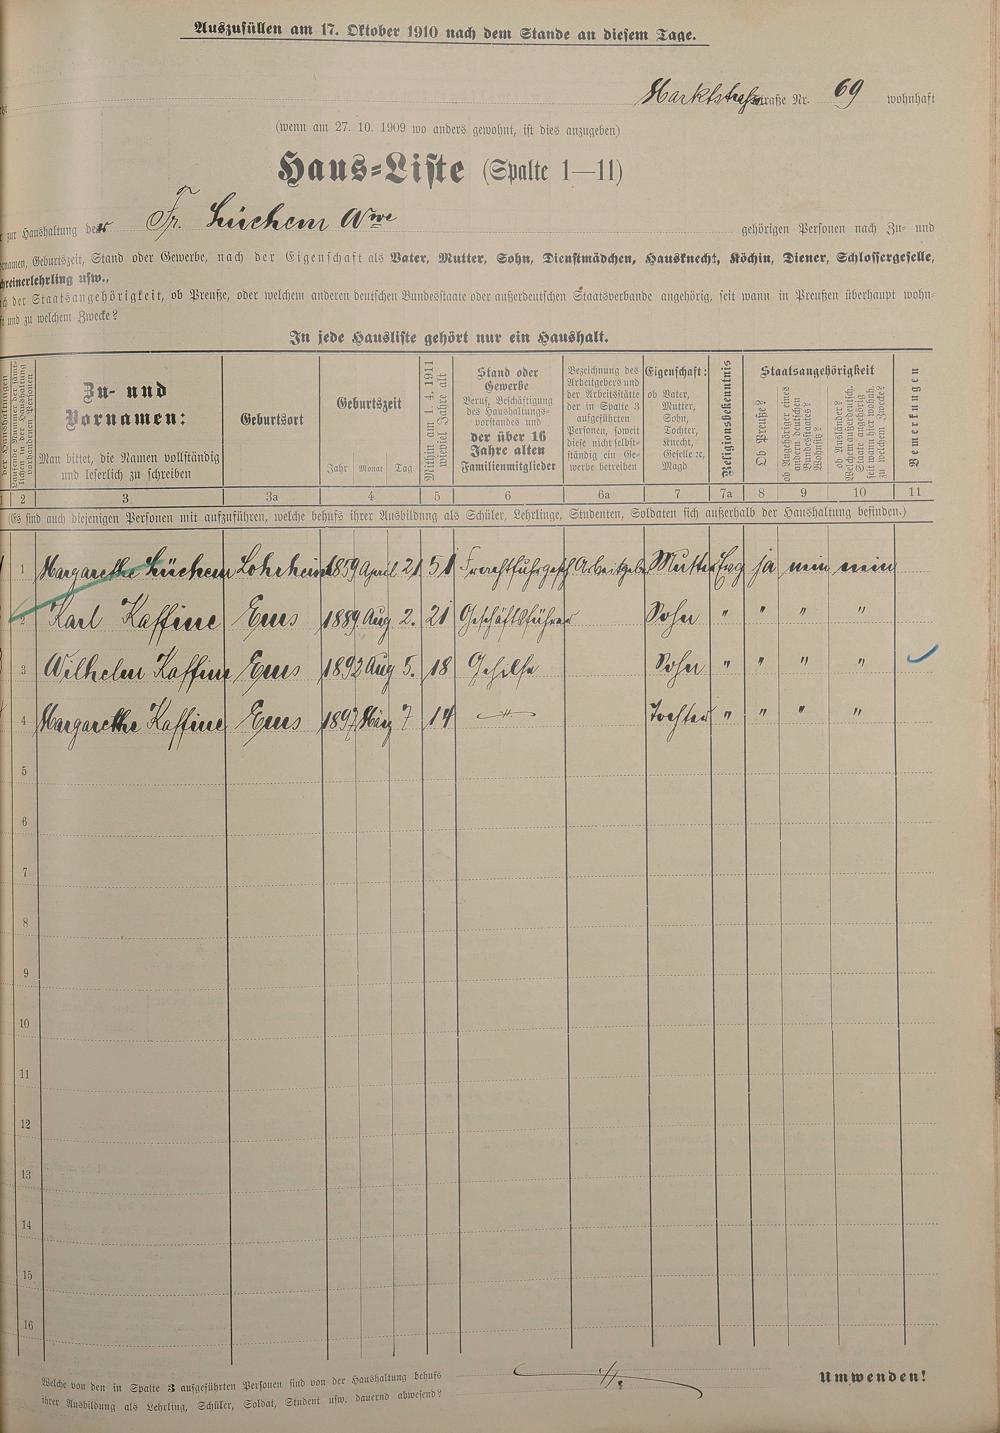 Auszufüllen am 17. Oktober 1910 nach dem Stande an diesem Tage.
Marktstraße straße Nr. 69 wohnhaft
(wenn am 27. 10. 1909 wo anders gewohnt, ist dies anzugeben)
Haus-Liste (Spalte 1—11)
zur Haushaltung der Fr. Lüchem Wwe gehörigen Personen nach Zu- und
ornamen, Geburtszeit, Stand oder Gewerbe, nach der Eigenschaft als Vater, Mutter, Sohn, Dienstmädchen, Hausknecht, Köchin, Diener, Schlossergeselle,
hreinerlehrling usw.,
ch der Staatsangehörigkeit, ob Preuße, oder welchem anderen deutschen Bundesstaate oder außerdeutschen Staatsverbande angehörig, seit wann in Preußen überhaupt wohn-
ft und zu welchem Zwecke?
In jede Hausliste gehört nur ein Haushalt.
der Haushaltungen
Laufende Nummer der sämt-
lichen in der Haushaltung
vorhandenen Personen
Zu- und
Vornamen:
Man bittet, die Namen vollständig
und leserlich zu schreiben
Geburtsort
Geburtszeit
Jahr Monat Tag
Mithin am 1. 4. 1911
wieviel Jahre alt
Stand oder
Gewerbe
Beruf, Beschäftigung
des Haushaltungs-
vorstandes und
der über 16
Jahre alten
Familienmitglieder
Bezeichnung des
Arbeitgebers und
der Arbeitsstätte
der in Spalte 3
aufgeführten
Personen, soweit
diese nicht selbst-
ständig ein Ge-
werbe betreiben
Eigenschaft:
ob Vater,
Mutter,
Sohn,
Tochter,
Knecht,
Geselle ꝛc,
Magd
Religionsbekenntnis
Staatsangehörigkeit
Ob Preuße?
ob Angehöriger eines
andern deutschen
Bundesstaates?
Wohnsitz?
ob Ausländer?
Welchem außerdeutsch.
Staate angehörig
seit wann hier wohnh.
zu welchem Zwecke?
Bemerkungen
2 3 3a 4 5 6 6a 7 7a 8 9 10 11
(Es sind auch diejenigen Personen mit aufzuführen, welche behufs ihrer Ausbildung als Schüler, Lehrlinge, Studenten, Soldaten sich außerhalb der Haushaltung befinden.)
1 Margarethe Lüchem Lohrheim 1859 April 21 51 Frachtfuhrgesch. Arbeitgeber Mutter Evg ja nein nein
2 Karl Kaffine Ems 1889 Aug 2. 21 Geschäftsführer Sohn " " " "
3 Wilhelm Kaffine Ems 1892 Aug 5. 18 Gehilfe Sohn " " " "
4 Margarethe Kaffine Ems 1897 März 7 14 Tochter " " " "
5
6
7
8
9
10
11
12
13
14
15
16
Welche von den in Spalte 3 aufgeführten Personen sind von der Haushaltung behufs
ihrer Ausbildung als Lehrling, Schüler, Soldat, Student usw. dauernd abwesend?
Umwenden!